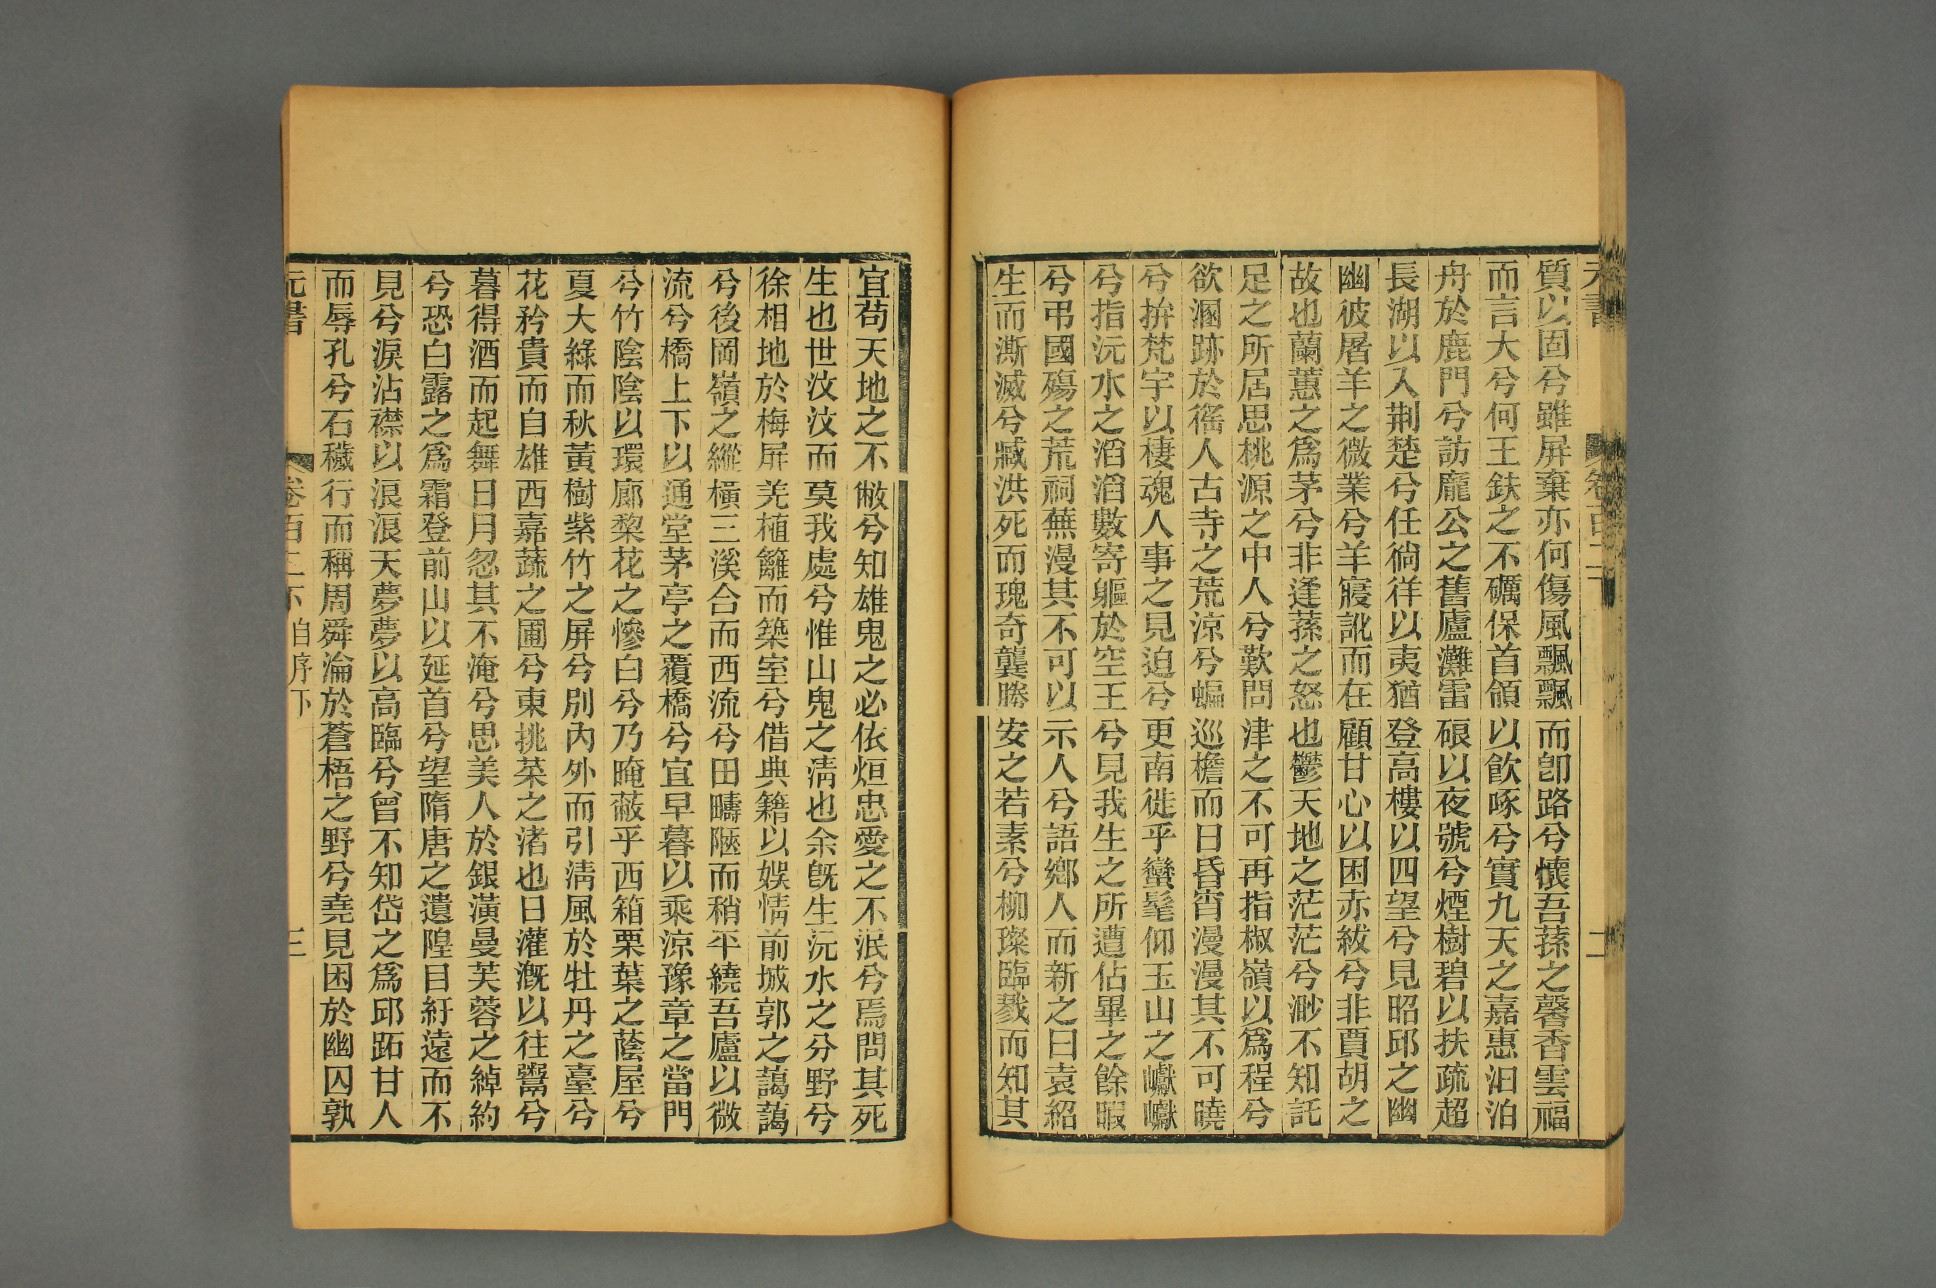 元書 卷百二下 二
質以固兮雖屏棄亦何傷風飄飄而卽路兮懷吾蓀之馨香雲福
而言大兮何王鈇之不礪保首領以飮啄兮實九天之嘉惠汩泊
舟於鹿門兮訪龐公之舊廬灘雷硠以夜號兮煙樹碧以扶疏超
長湖以入荆楚兮任徜徉以夷猶登高樓以四望兮見昭邱之幽
幽彼屠羊之微業兮羊寢訛而在顧甘心以困赤紱兮非賈胡之
故也蘭蕙之爲茅兮非逢蓀之怒也鬱天地之茫茫兮渺不知託
足之所居思桃源之中人兮歎問津之不可再指椒嶺以爲程兮
欲溷跡於徭人古寺之荒涼兮蝠巡檐而日昏宵漫漫其不可曉
兮拚梵宇以棲魂人事之見迫兮更南徙乎蠻髦仰玉山之巘巘
兮指沅水之滔滔數寄軀於空王兮見我生之所遭佔畢之餘暇
兮弔國殤之荒祠蕪漫其不可以示人兮語鄉人而新之曰袁紹
生而澌滅兮臧洪死而瑰奇龔勝安之若素兮柳璨臨戮而知其
宜苟天地之不敝兮知雄鬼之必依烜忠愛之不泯兮焉問其死
生也世汶汶而莫我處兮惟山鬼之淸也余旣生沅水之分野兮
徐相地於梅屏羌植籬而築室兮借典籍以娛情前城郭之藹藹
兮後岡嶺之縱橫三溪合而西流兮田疇陿而稍平繞吾廬以微
流兮橋上下以通堂茅亭之覆橋兮宜早暮以乘涼豫章之當門
兮竹陰陰以環廊棃花之慘白兮乃晻薆乎西箱栗葉之蔭屋兮
夏大綠而秋黃樹紫竹之屏兮別內外而引淸風於牡丹之臺兮
花矜貴而自雄西嘉蔬之圃兮東挑菜之渚也日灌漑以往鬻兮
暮得酒而起舞日月忽其不淹兮思美人於銀潢曼芙蓉之綽約
兮恐白露之爲霜登前山以延首兮望隋唐之遺隍目紆遠而不
見兮淚沾襟以浪浪天夢夢以高臨兮曾不知岱之爲邱跖甘人
而辱孔兮石穢行而稱周舜淪於蒼梧之野兮堯見困於幽囚孰
元書 卷百二下 自序下 三